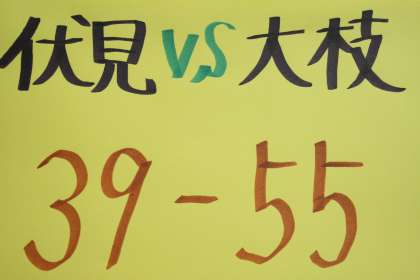 伏見 VS 大枝
39-55